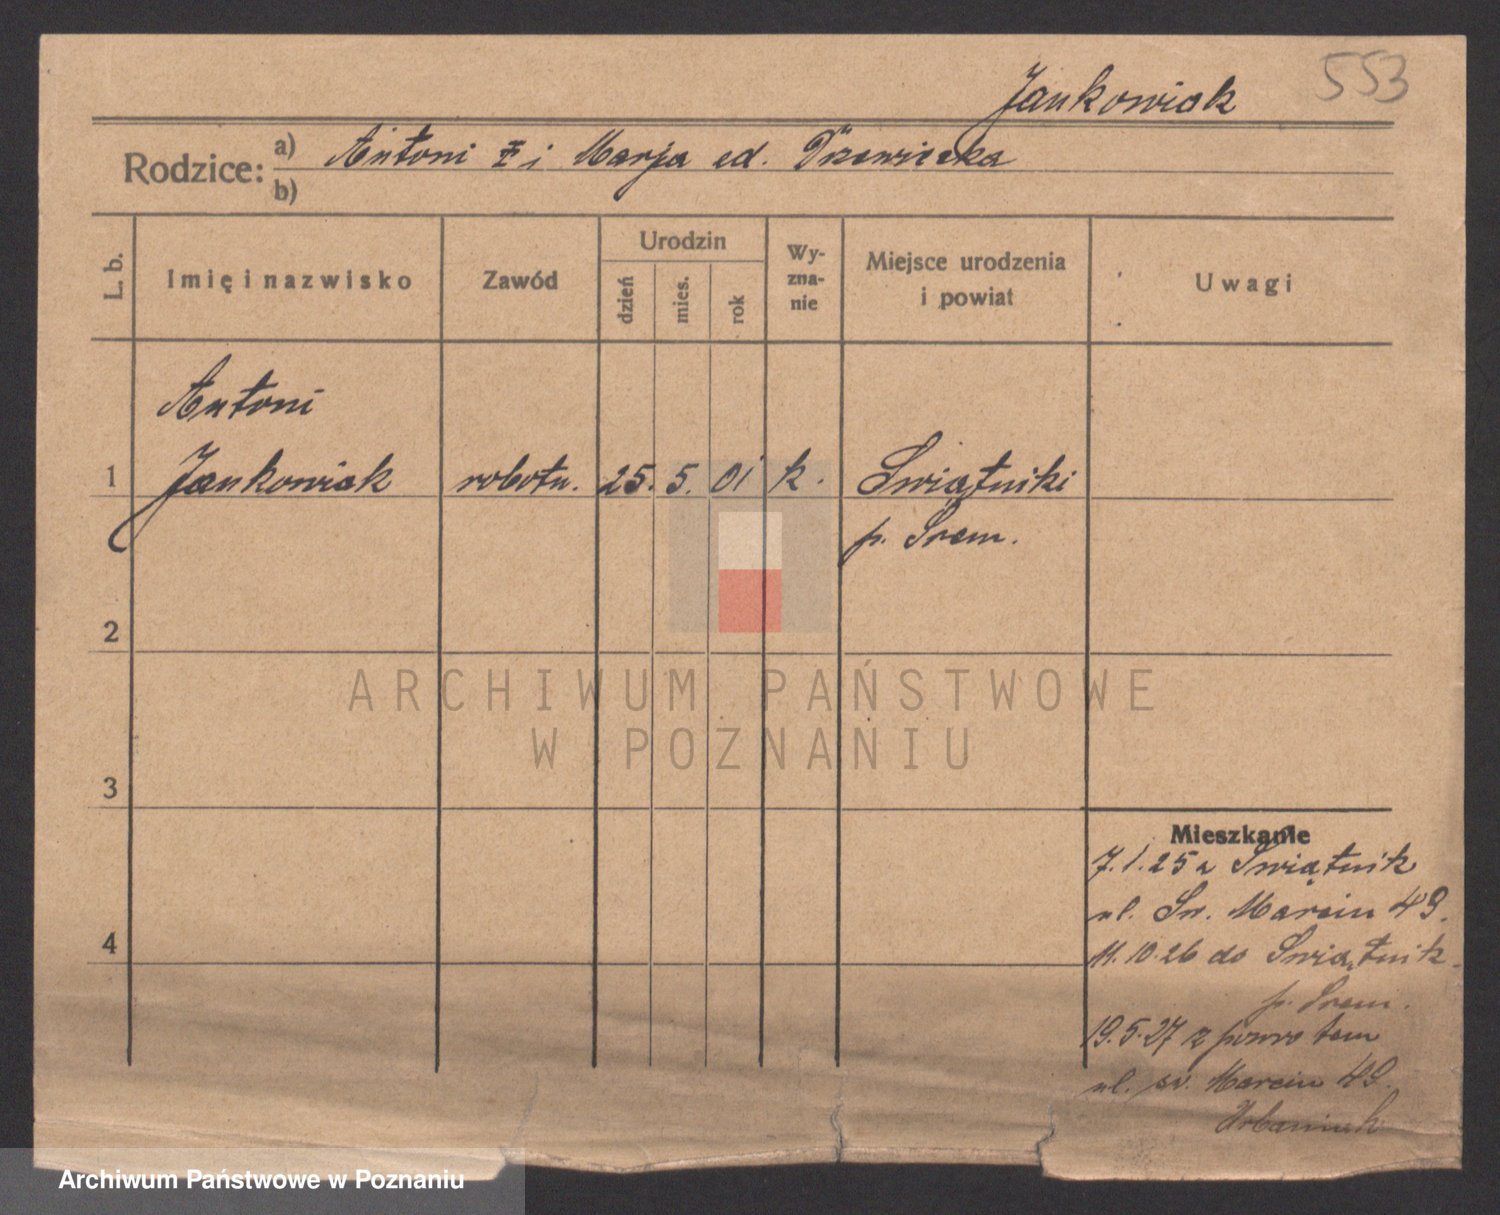 553
Jankowiak
Rodzice: a) Antoni i Marja
b)
L. b.
Imię i nazwisko
Zawód
Urodzin
dzień
mies.
rok
Wy-
zna-
nie
Miejsce urodzenia
i powiat
Uwagi
Antoni
1 Jankowiak robotn. 25. 5. 01 k. Świątniki
p. Śrem.
2
ARCHIWUM PAŃSTWOWE
W POZNANIU
3
Mieszkanie
7.1.25 z Świątnik
ul. Św. Marcin 49.
4
11.10.26 do Świątnik
p. Śrem.
19.5.27 z powrotem
ul. św. Marcin 49.
Urbaniak
Archiwum Państwowe w Poznaniu